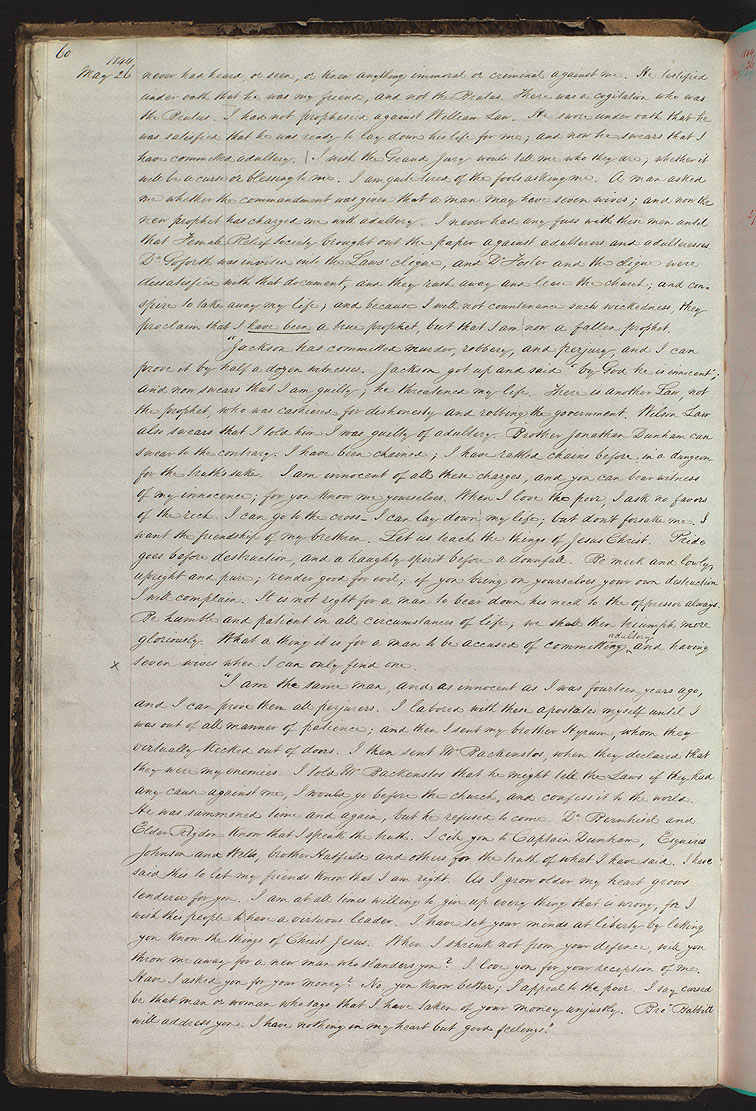 60
1844
May 26 never has heard or seen, or knew anything immoral or criminal against me. He testified
under oath that he was my friend, and not the Brutus. There was a cogitation who was
the Brutus. I had not prophesied against William Law. He swore under oath that he
was satisfied that he was ready to lay down his life for me; and now he swears that I
have committed adultery. I wish the Grand Jury would tell me who they are; whether it
will be a curse or blessing to me. I am quite tired of the fools asking me. A man asked
me whether the commandment was given that a man may have seven wives; and now the
new prophet has charged me with adultery. I never had any fuss with these men until
that Female Relief Society brought out the paper against adulterers and adulteresses
Dr. Goforth was invited into the Laws' clique, and Dr Foster and the clique were
dissatisfied with that document, and they rush away and leave the church, and con-
spire to take away my life; and because I will not countenance such wickedness, they
proclaim that I have been a true prophet, but that I am now a fallen prophet.
"Jackson has committed murder, robbery, and perjury, and I can
prove it by half a dozen witnesses. Jackson got up and said "by God he is innocent";
and now swears that I am guilty; he threatened my life. There is another Law, not
the prophet, who was cashiered for dishonesty and robbing the government. Wilson Law
also swears that I told him I was guilty of adultery. Brother Jonathan Dunham can
swear to the contrary. I have been chained; I have rattled chains before in a dungeon
for the truth's sake. I am innocent of all these charges, and you can bear witness
of my innocence; for you know me yourselves. When I love the poor I ask no favors
of the rich I can go to the cross— I can lay down my life; but don't forsake me. I
want the friendship of my brethren. Let us teach the things of Jesus Christ. Pride
goes before destruction, and a haughty spirit before a downfall. Be meek and lowly,
upright and pure; render good for evil; if you bring on yourselves your own destruction
I will complain. It is not right for a man to bear down his neck to the oppressor always.
Be humble and patient in all circumstances of life; we shall then triumph more
gloriously. What a thing it is for a man to be accused of committing adultery and having
x seven wives when I can only find one.
"I am the same man, and as innocent as I was fourteen years ago,
and I can prove them all perjurers. I labored with these apostates myself until I
was out of all manner of patience; and then I sent my brother Hyrum, whom they
virtually kicked out of doors. I then sent Mr Backenstos, when they declared that
they were my enemies. I told Mr Backenstos that he might tell the Laws if they had
any cause against me, I would go before the church, and confess it to the world.
He was summoned time and again, but he refused to come. Dr Bernhisel and
Elder Rigdon know that I speak the truth. I cite you to Captain Dunham, Esquires
Johnson and Wells, brother Hatfield and others for the truth of what I have said. I have
said this to let my friends know that I am right. As I grow older my heart grows
tenderer for you. I am at all times willing to give up every thing that is wrong, for I
wish this people to have a virtuous leader. I have set your minds at liberty by letting
you know the things of Christ Jesus. When I shrink not from your defence, will you
throw me away for a new man who slanders you? I love you for your reception of me.
Have I asked you for your money? No, you know better; I appeal to the poor. I say cursed
be that man or woman who says that I have taken of your money unjustly. Bro. Babbitt
will address you. I have nothing in my heart but good feelings."